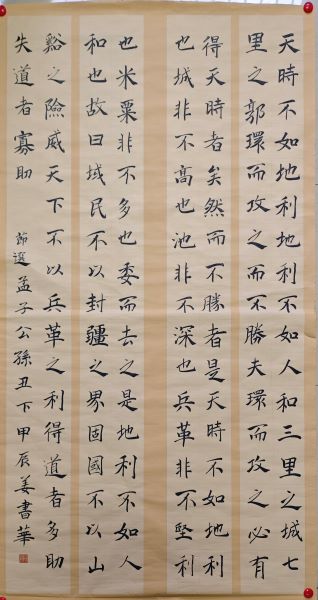 天時不如地利地利不如人和三里之城七
里之郭環而攻之而不勝夫環而攻之必有
得天時者矣然而不勝者是天時不如地利
也城非不高也池非不深也兵革非不堅利
也米粟非不多也委而去之是地利不如人
和也故曰域民不以封疆之界固國不以山
谿之險威天下不以兵革之利得道者多助
失道者寡助 節選孟子公孫丑下甲辰姜書華